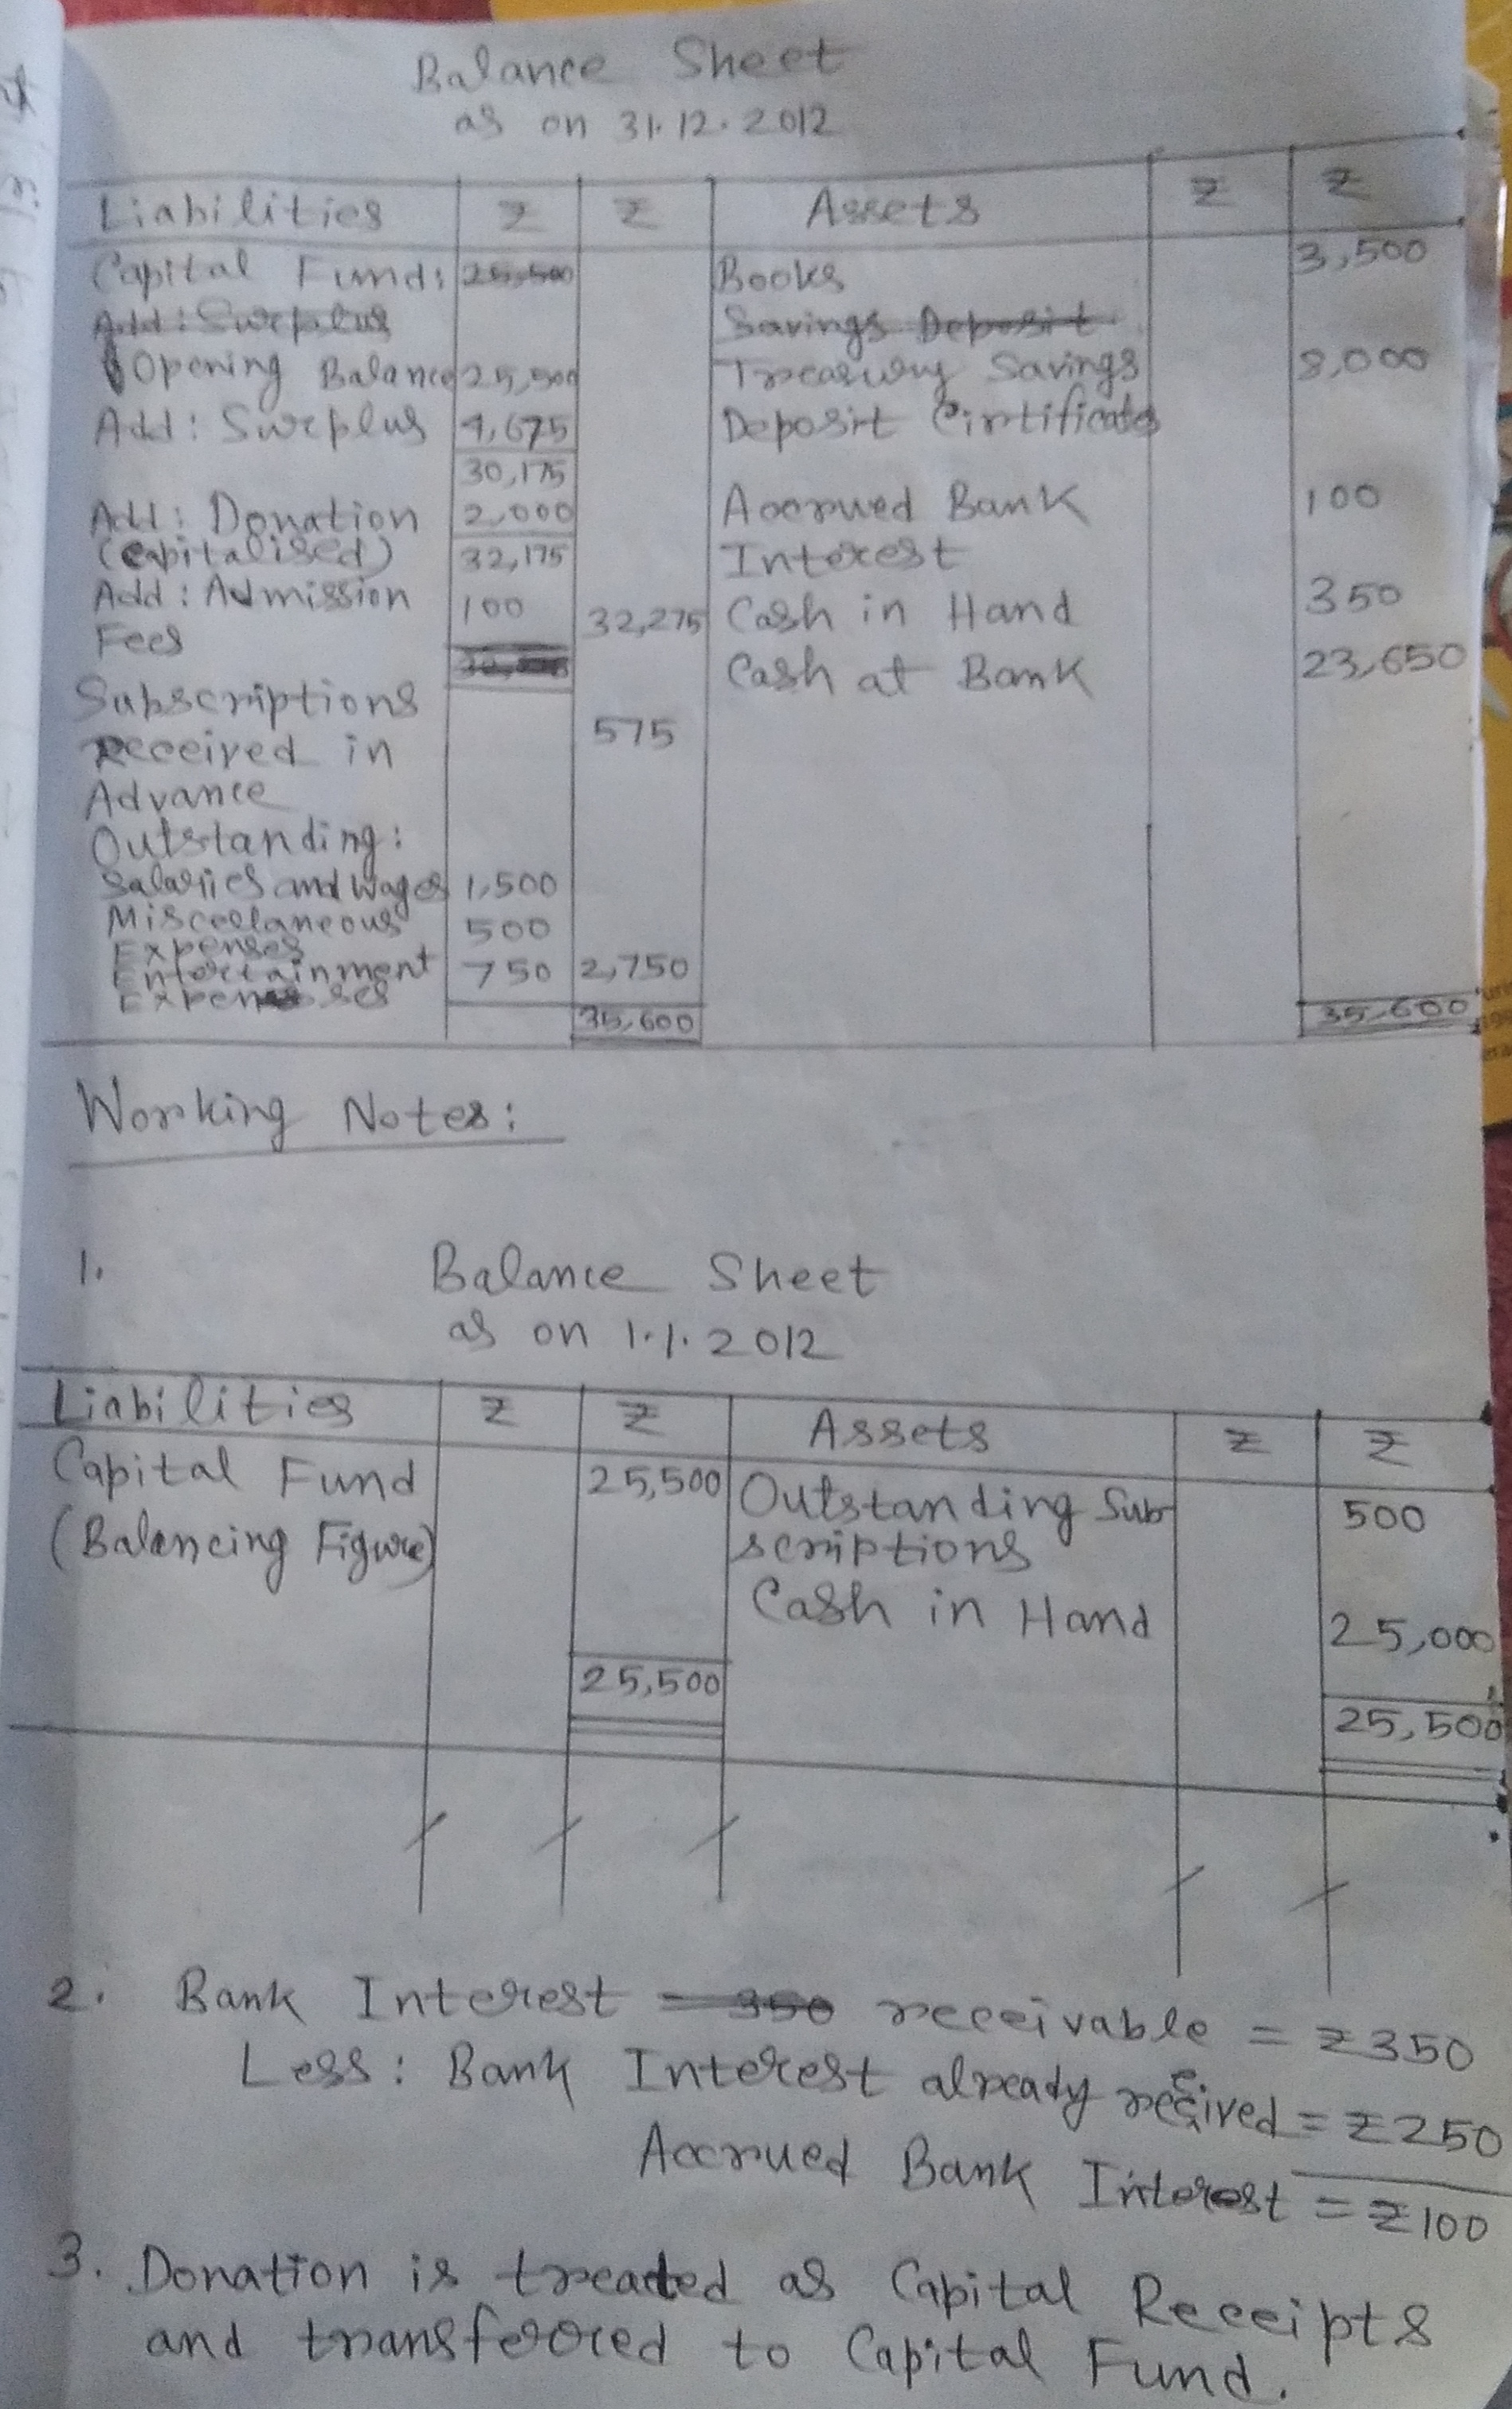 Balance Sheet
as on 31.12.2012
Liabilities ₹ ₹ Assets ₹ ₹
Capital Fund: 25,500 Books 3,500
Add: Surplus Savings Deposit
Opening Balance 25,500 Treasury Savings 8,000
Add: Surplus 4,675 Deposit Cirtificates
30,175
Add: Donation 2,000 Accrued Bank 100
(Capitalised) 32,175 Interest
Add: Admission 100 32,275 Cash in Hand 350
Fees
Cash at Bank 23,650
Subscriptions
Received in 575
Advance
Outstanding:
Salaries and Wages 1,500
Miscellaneous 500
Expenses
Entertainment 750 2,750
Expenses
35,600 35,600
Working Notes:
1. Balance Sheet
as on 1.1.2012
Liabilities ₹ ₹ Assets ₹ ₹
Capital Fund 25,500 Outstanding Sub 500
(Balancing Figure) scriptions
Cash in Hand 25,000
25,500 25,500
2. Bank Interest = 350 receivable = ₹350
Less: Bank Interest already received = ₹250
Accrued Bank Interest = ₹100
3. Donation is treated as Capital Receipts
and transferred to Capital Fund.